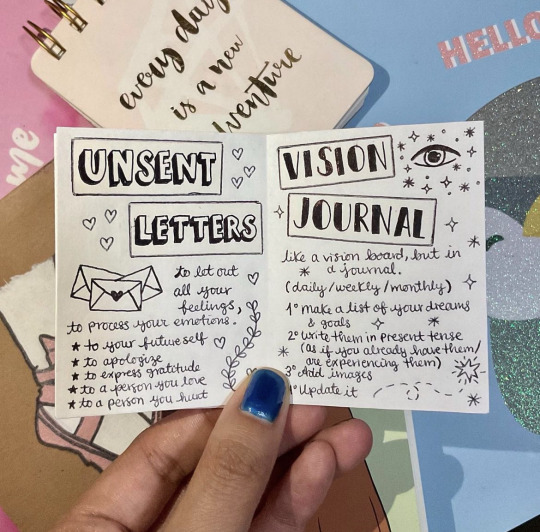 every day
is a new
HELLO
me
UNSENT
LETTERS
to let out
all your
feelings,
to process your emotions.
★ to your future self
★ to apologize
★ to express gratitude
★ to a person you love
★ to a person you hurt
VISION
JOURNAL
like a vision board, but in
a journal.
(daily/weekly/monthly)
1° make a list of your dreams
& goals
2° write them in present tense
(as if you already have them/
are experiencing them)
3° Add images
° Update it